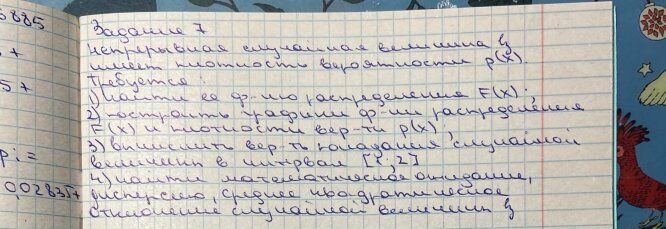 5885
Задание 7
непрерывная случайная величина ξ
имеет плотность вероятности p(x).
Требуется:
1) найти ее ф-ию распределения F(x).
2) построить графики ф-ии распределения
F(x) и плотности вер-ти p(x)
3) вычислить вер-ть попадания случайной
величины в интервал [1;2]
4) найти математическое ожидание,
дисперсию, среднее квадратическое
отклонение случайной величины ξ
5+
pi =
0,02835+